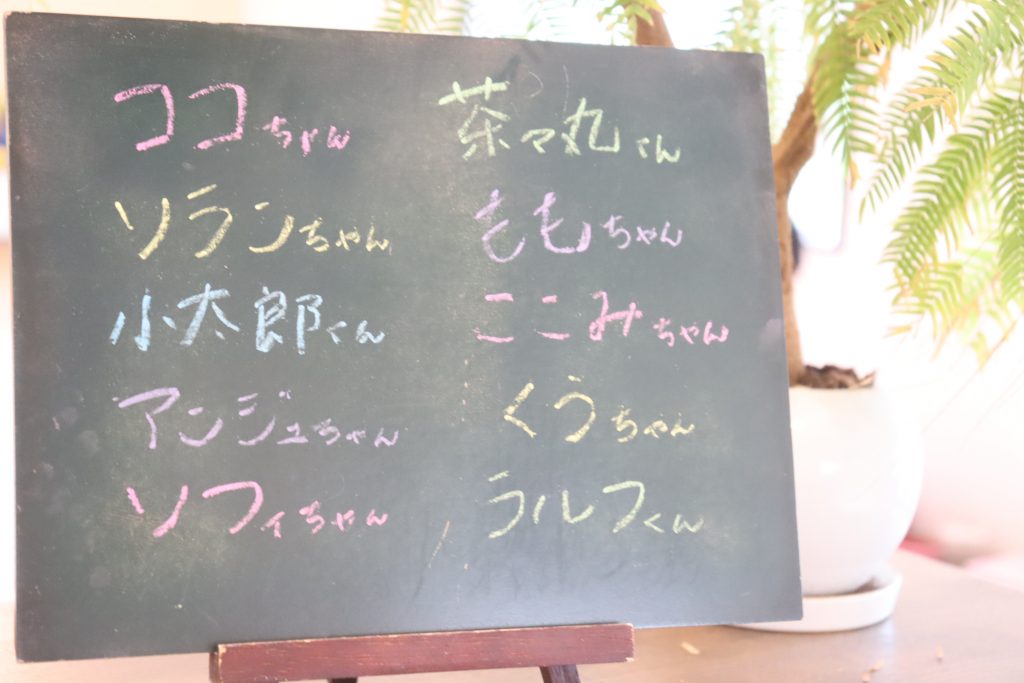 ココちゃん
ソランちゃん
小太郎くん
アンジュちゃん
ソフィちゃん
茶々丸くん
ももちゃん
ここみちゃん
くうちゃん
ラルフくん